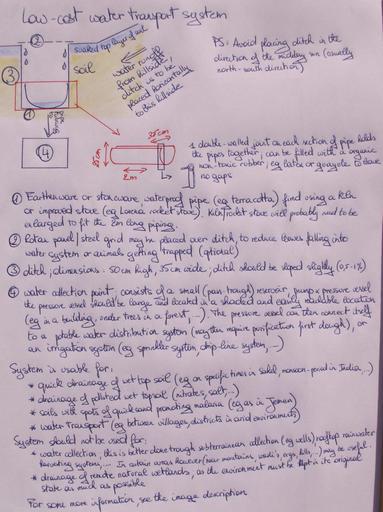 Low-cost water transport system
PS: Avoid placing ditch in the
direction of the midday sun (usually
north-south direction)
soaked top layer of soil
soil
water runoff
from hillside;
ditch is to be
placed horizontally
to this hillside
2
3
1
4
25cm
2m
1 double-walled joint at each section of pipe holds
the pipes together, can be filled with a organic
non-toxic rubber, eg latex or guayule to leave
no gaps
1 Earthenware or stoneware waterproof pipe (eg terracotta) fired using a kiln
or improved stove (eg Lorena, rocket stove). Kiln/rocket stove will probably need to be
enlarged to fit the 2m long piping.
2 Rotan panel/steel grid may be placed over ditch, to reduce leaves falling into
water system or animals getting trapped (optional)
3 ditch; dimensions: 50cm high, 35cm wide; ditch should be sloped slightly (0,5-1%)
4 water collection point, consists of a small reservoir, pump & pressure vessel
the pressure vessel should be large and located in a shaded and easily available location
(eg in a building, under trees in a forest, ...). The pressure vessel can then connect itself
to a potable water distribution system (may then require purification first though), or
an irrigation system (eg sprinkler system, drip-line system, ...)
System is usable for:
* quick drainage of wet top soil (eg on specific times in Sahel, monsoon-period in India, ...)
* drainage of polluted wet topsoil (nitrates, salt, ...)
* soils with spots of quick sand promoting malaria (eg as in Yemen)
* water transport (eg between villages, districts in arid environments)
System should not be used for:
* water collection, this is better done trough subterranean collection (eg wells), rooftop rainwater
harvesting systems, ... In certain areas however (near mountains, wadi's, ergs, hills, ...) may be useful.
* drainage of remote natural wetlands, as the environment must be kept in its original
state as much as possible
For some more information, see the image description